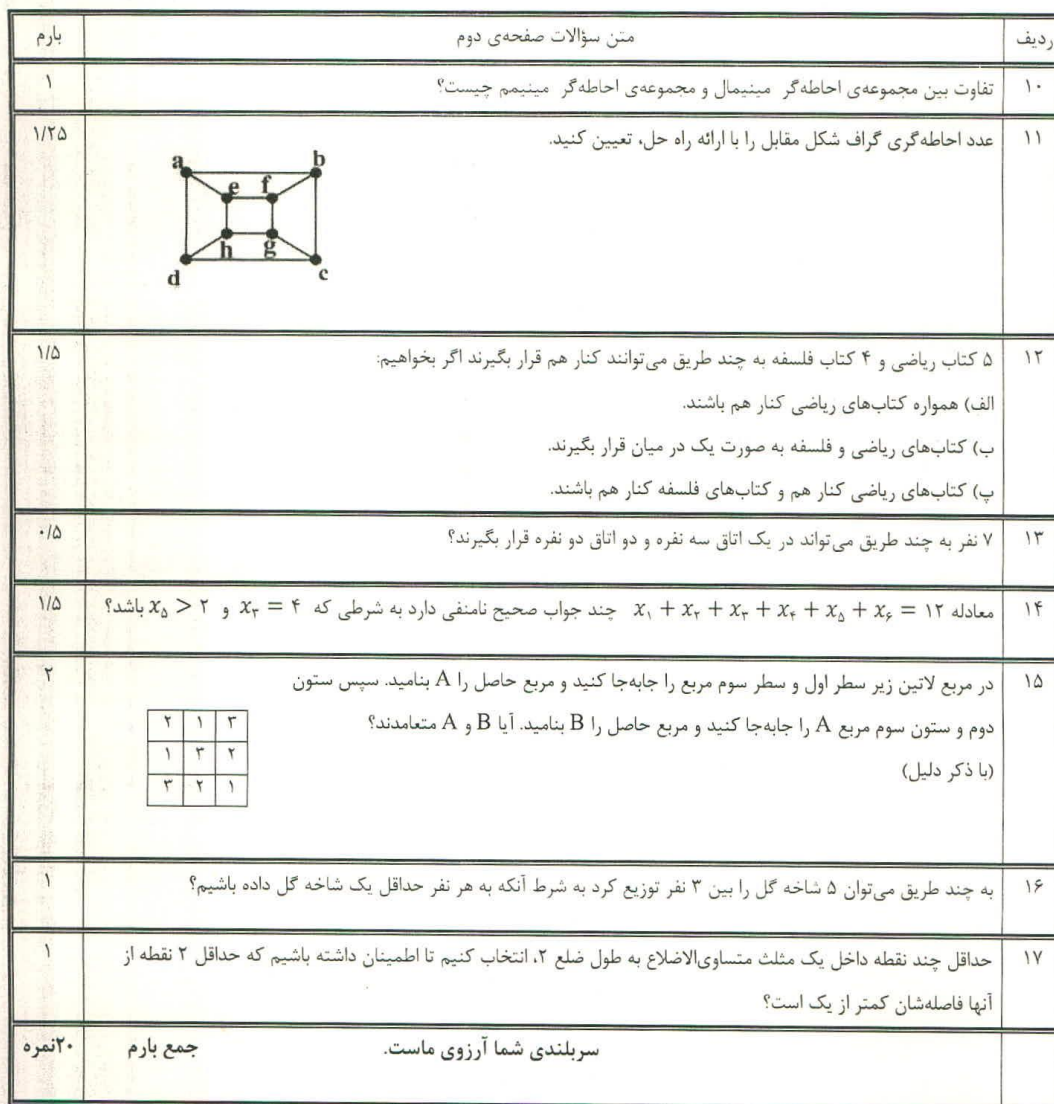 ردیف متن سؤالات صفحه‌ی دوم بارم
۱۰ تفاوت بین مجموعه‌ی احاطه‌گر مینیمال و مجموعه‌ی احاطه‌گر مینیمم چیست؟ ۱
۱۱ عدد احاطه‌گری گراف شکل مقابل را با ارائه راه حل، تعیین کنید. ۱/۲۵
a b
e f
h g
d c
۱۲ ۵ کتاب ریاضی و ۴ کتاب فلسفه به چند طریق می‌توانند کنار هم قرار بگیرند اگر بخواهیم: ۱/۵
الف) همواره کتاب‌های ریاضی کنار هم باشند.
ب) کتاب‌های ریاضی و فلسفه به صورت یک در میان قرار بگیرند.
پ) کتاب‌های ریاضی کنار هم و کتاب‌های فلسفه کنار هم باشند.
۱۳ ۷ نفر به چند طریق می‌تواند در یک اتاق سه نفره و دو اتاق دو نفره قرار بگیرند؟ ۰/۵
۱۴ معادله x₁ + x₂ + x₃ + x₄ + x₅ + x₆ = ۱۲ چند جواب صحیح نامنفی دارد به شرطی که x₃ = ۴ و x₅ > ۲ باشد؟ ۱/۵
۱۵ در مربع لاتین زیر سطر اول و سطر سوم مربع را جابه‌جا کنید و مربع حاصل را A بنامید. سپس ستون ۲
دوم و ستون سوم مربع A را جابه‌جا کنید و مربع حاصل را B بنامید. آیا B و A متعامدند؟
(با ذکر دلیل)
۲ ۱ ۳
۱ ۳ ۲
۳ ۲ ۱
۱۶ به چند طریق می‌توان ۵ شاخه گل را بین ۳ نفر توزیع کرد به شرط آنکه به هر نفر حداقل یک شاخه گل داده باشیم؟ ۱
۱۷ حداقل چند نقطه داخل یک مثلث متساوی‌الاضلاع به طول ضلع ۲، انتخاب کنیم تا اطمینان داشته باشیم که حداقل ۲ نقطه از ۱
آنها فاصله‌شان کمتر از یک است؟
سربلندی شما آرزوی ماست. جمع بارم ۲۰نمره